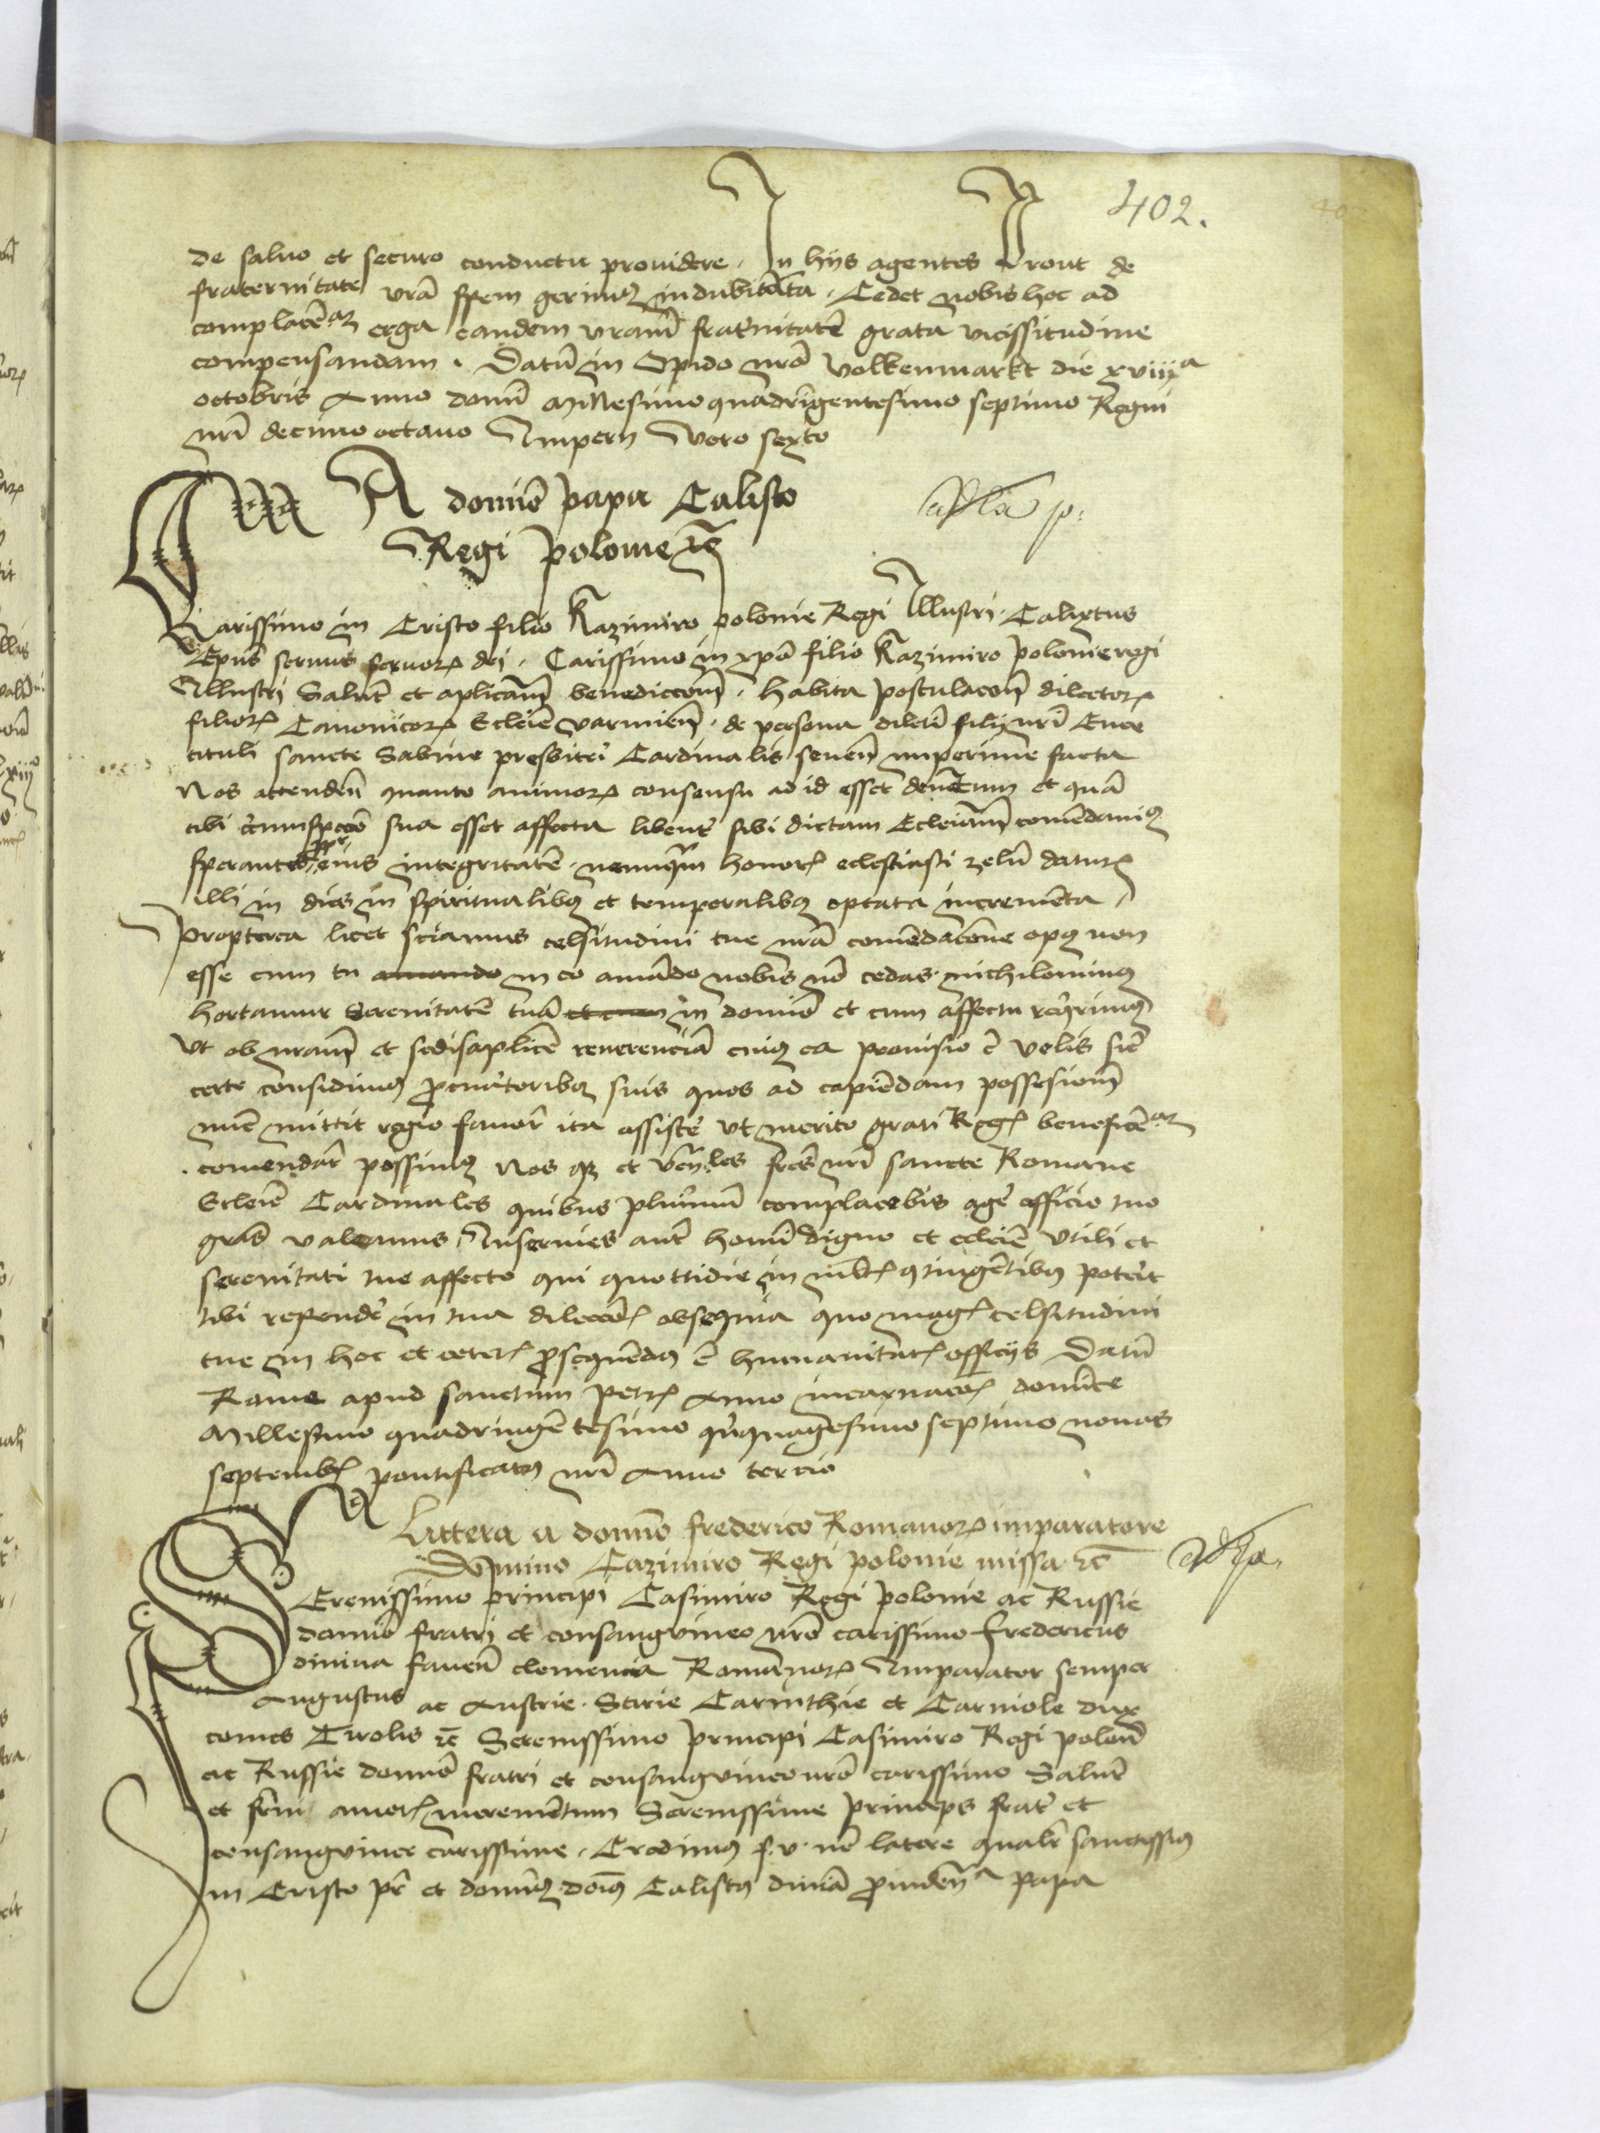 402.
de saluo et securo conductu prouidere. In hijs agentes Prout de
fraternitate vrā spem gerimus indubitāta. Cedet nobis hoc ad
complacēn erga eandem vram̄ frat'nitatē grata vicissitudine
compensandam. Datū in Opido nrō Volkenmarkt die xviija
octobris Anno domī Millesimo quadringentesimo septimo Regni
nrī decimo octauo Imperij Vero sexto
A domiō papa Calisto
Regi polonie rc̄
Karissimo in Cristo filio Kazimiro polonie Regi Illustri Calixtus
Epūs seruus seruorꝝ dei. Carissimo in xpō filio Kazimiro polonie regi
Illustri Salutē et aplicam̄ benediccōm̄. Habita postulacōn̄ dilectorꝝ
filiorꝝ Canonicorꝝ Ecclēie varmien̄. de persona dilcti filij nrī Enee
tituli sancte Sabine presbiteri Cardinalis senen̄ nuperime facta
Nos attenden̄ quanto animorꝝ consensu ad id esset deuentum et quā
tibi c'cumspccō sua esset affecta libent' sibi dictam Eccleiam̄ comēdauimꝰ
sperantes eius integritatē. nemqm̄ honorꝭ eclesiasti zelū daturꝭ
illi in dies in spiritualibꝰ et temporalibꝰ optata incremēta
Propterea licet sciamus celsitudini tue nrā comēdacōne opꝰ non
esse cum tu in eo amādo nobis nō cedas. nichilominꝰ
hortamur Serenitatē tuā in domiō et cum affectu req'rimꝰ
Vt ob nram̄ et sedis aplicē reuerenciā cuiꝰ ea prouisio ē velis sic̄
certe confidimꝰ ꝓcuratoribꝰ suis quos ad capiendam possesionē
nūc mittit regio fauorē ita assiste' vt merito grati Regꝭ beneficēn
comendar' possimꝰ Nos qꝫ et Ven'les frēs nrī sancte Romane
Eccleie Cardinales quibus plurimū complacebis age' officio tuo
gras̄ valeamus, Inseruies aut̄ homī digno et eccleie Vtili et
serenitati tue affecto qui quottidie in mltꝭ ꝯtingētibꝰ poterit
tibi repende' in tua dileccōꝭ obsequia quo magꝭ celsitudini
tue in hoc et ceterꝭ ꝓsequēdꝰ ē humanitatꝭ officijs Datū
Rome apud sanctum petrꝭ Anno incarnacōꝭ domīce
Millesimo quadringentesimo quinquagesimo septimo nonas
septembꝭ pontificatꝰ nrī Anno tercio
Littera a domiō frederico Romanorꝝ imparatore
Domino Cazimiro Regi polonie missa rc̄
SErenissimo principi Casimiro Regi polonie ac Russie
domiō fratri et consangwineo nrō carissimo Fredericus
diuina fauen̄ clemencia Romanorꝝ Imparator semper
Augustus ac Austrie. Stirie Carinthie et Carniole dux
comes Tirolis rc̄ Serenissimo principi Casimiro Regi polon̄
ac Russie domiō fratri et consangwineo nrō carissimo Salutē
et frn̄ amorꝭ incrementum Serenissime princeps frat' et
consangwinee carissime. Credimꝰ f. v. nō latere qualr̄ sanctissimꝰ
in Cristo pr̄ et dominꝰ. doīs Calistꝰ diuiā ꝓuidenā papa